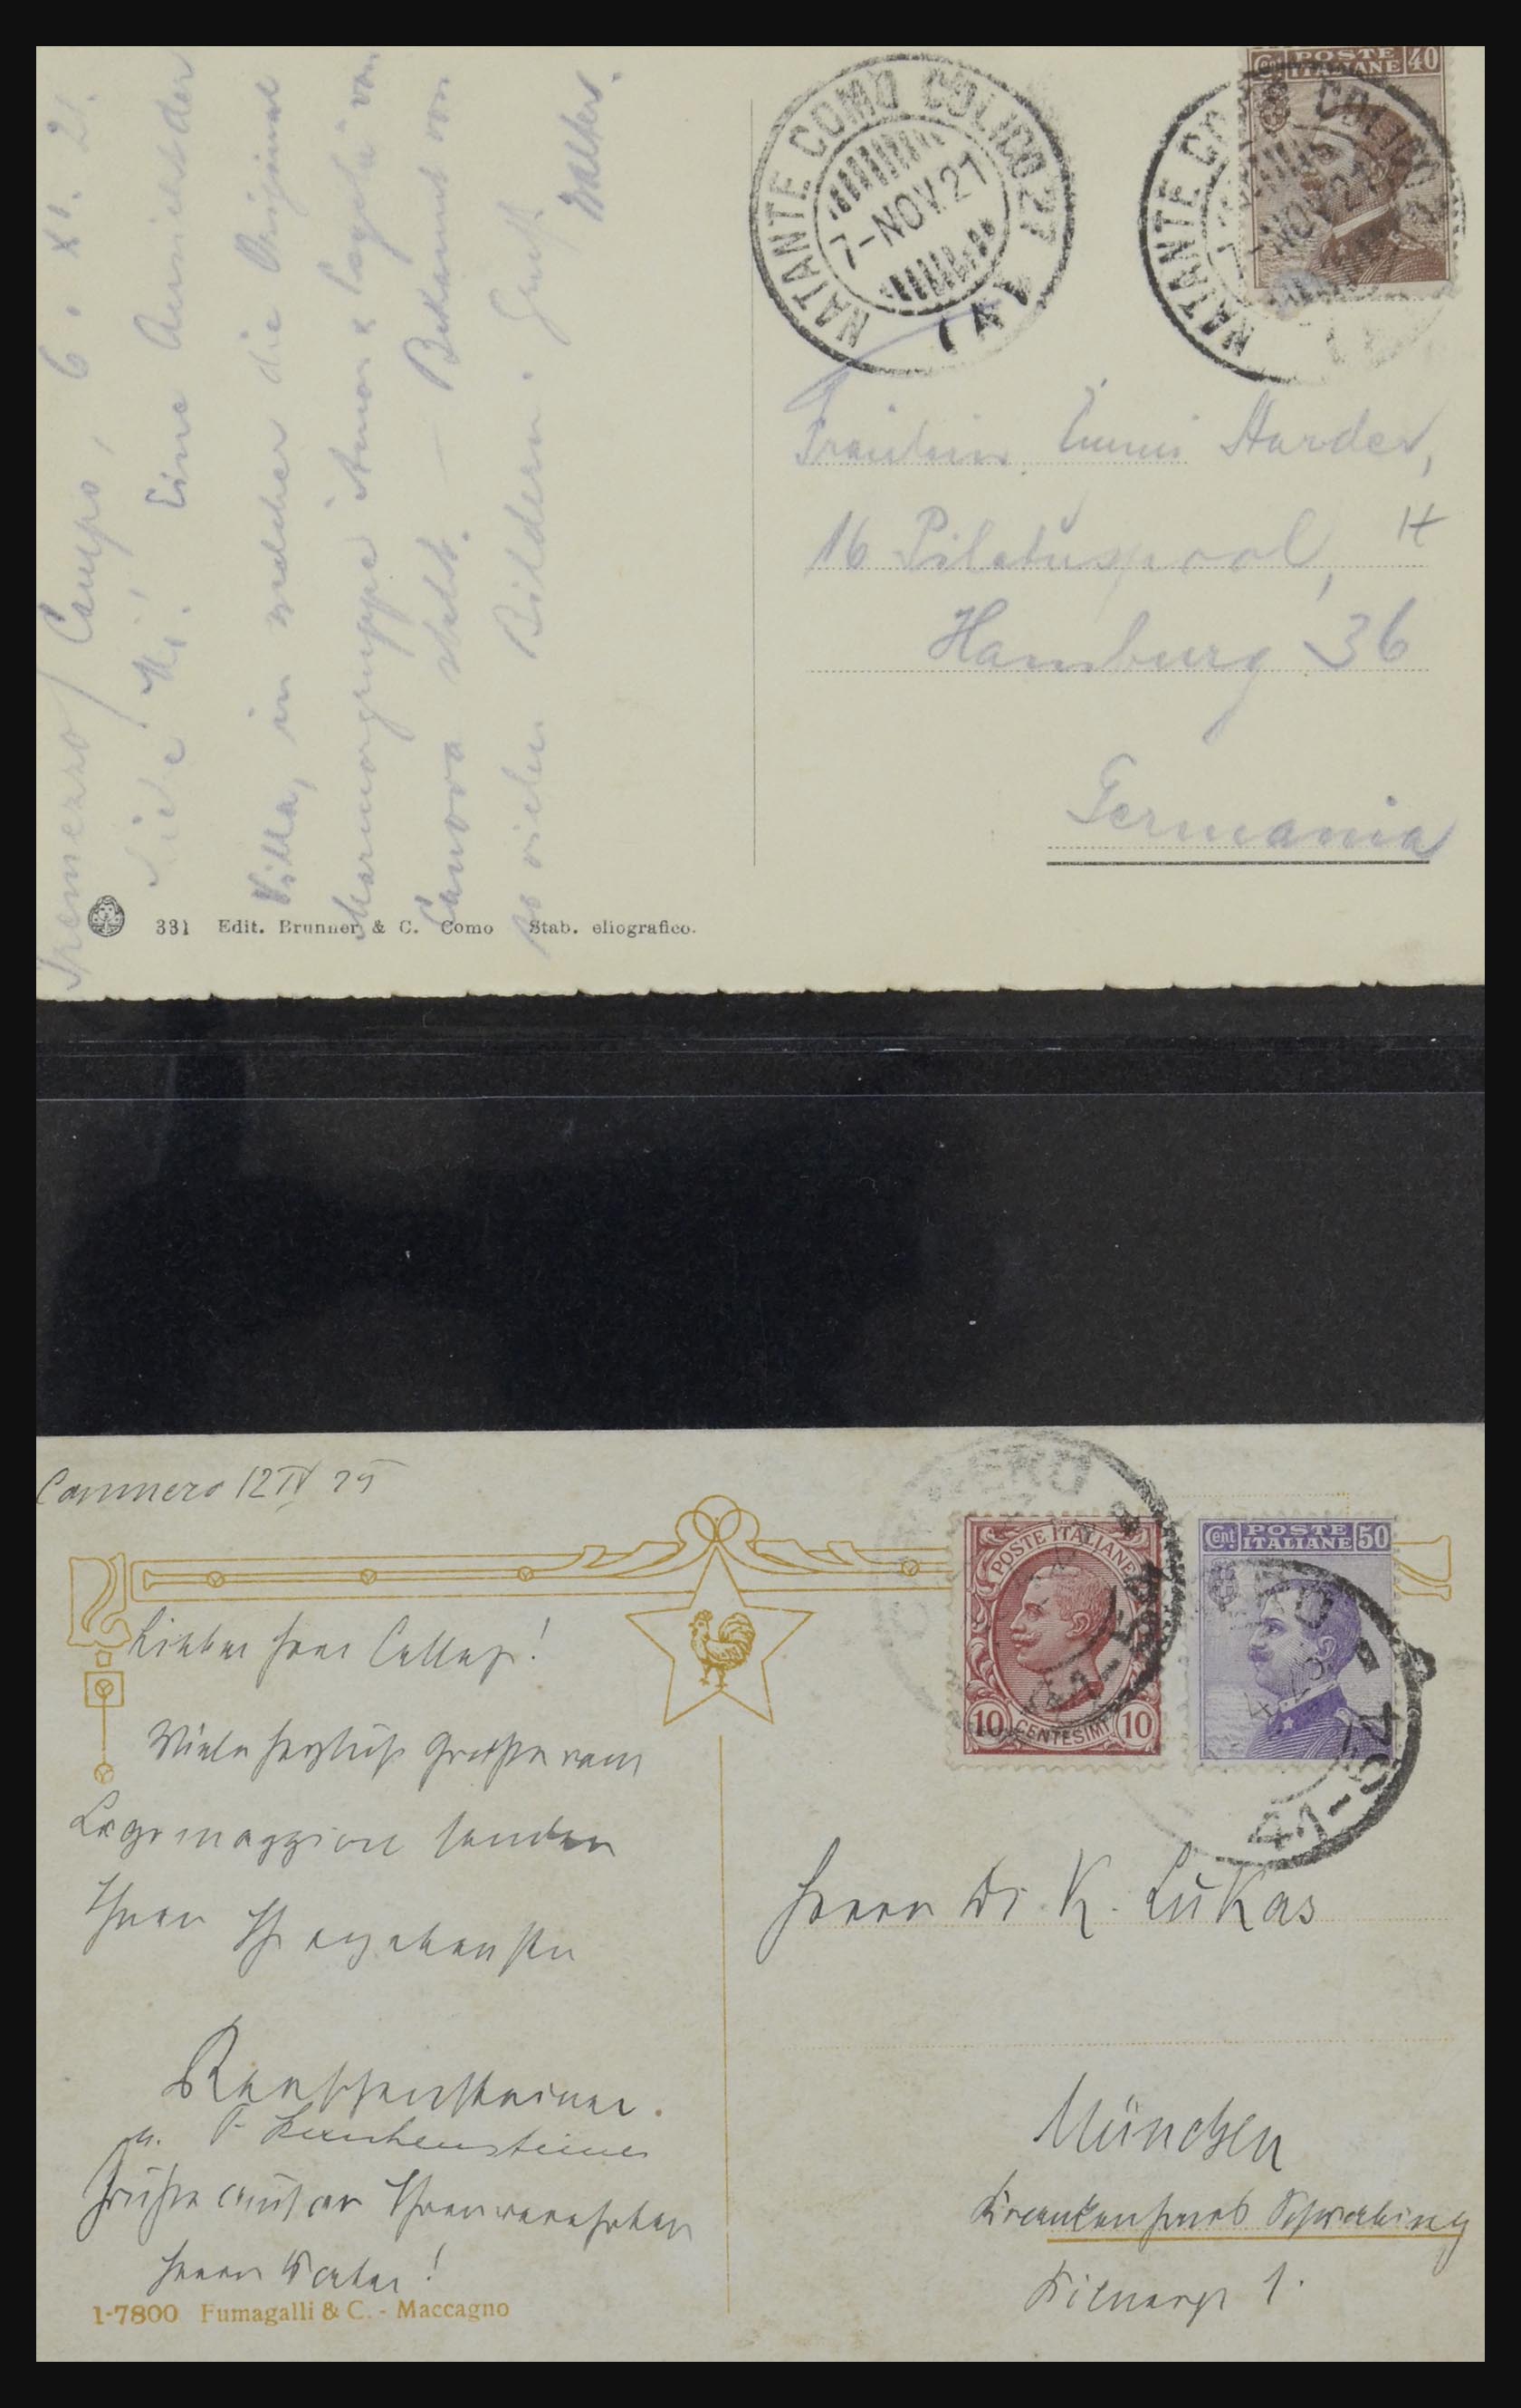 Tremezzo / Campo, 6. XI. 21.
Eine Aussicht der
Villa, in welcher die Original
Marmorgruppe "Amor & Psyche" von
Canova steht. — Bekannt von
so vielen Bildern. Gruß
Walter.
331 Edit. Brunner & C. Como Stab. eliografico.
NATANTE COMO COLICO 27
7-NOV.21
POSTE ITALIANE 40
NATANTE CO COLICO
-NOV.21
Fräulein Emmi Harder,
16 Pilatuspool,
Hamburg 36
Germania
Cannero 12 IV 25
POSTE ITALIANE
10 CENTESIMI 10
Cent POSTE ITALIANE 50
Lieber Herr College!
Viele herzliche Grüße vom
Lago maggiore senden
Ihnen Ihr ergebenster
u. F. Kerschensteiner
Grüße auch an Ihren verehrten
Herrn Vater!
1-7800 Fumagalli & C. - Maccagno
Herrn Dr. K. Lukas
München
Krankenhaus Schwabing
1.